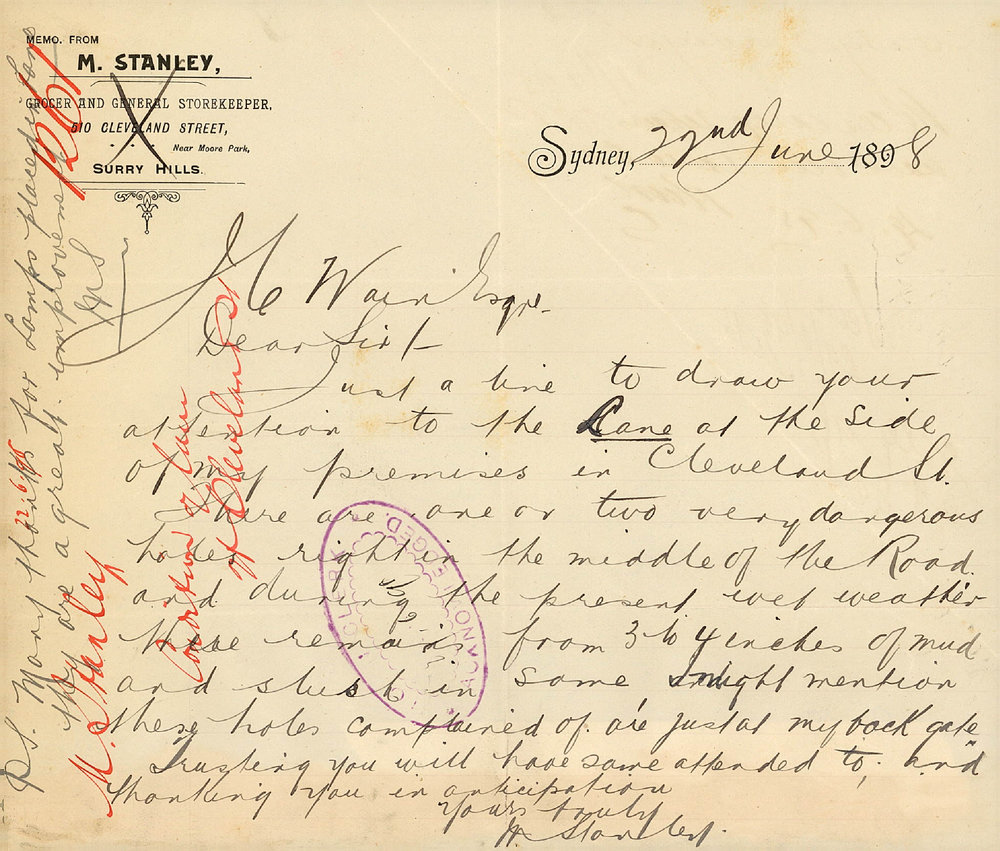 MEMO. FROM
M. STANLEY,
GROCER AND GENERAL STOREKEEPER,
510 CLEVELAND STREET,
Near Moore Park,
SURRY HILLS.
Sydney, 22nd June 1898
J C Wain Esqre
Dear Sir/-
Just a line to draw your
attention to the Lane at the side
of my premises in Cleveland St.
There are one or two very dangerous
holes right in the middle of the Road.
and during the present wet weather
there remain from 3 to 4 inches of mud
and slush in some I might mention
these holes complained of are just at my back gate
Trusting you will have same attended to; and
thanking you in anticipation
Yours truly
M Stanley.
P.S. Many thanks for Lamps placed in Lane
they are a great improvement
MS
1261
22.6.98
M. Stanley
Condition of lane
off Cleveland St
ACKNOWLEDGED.